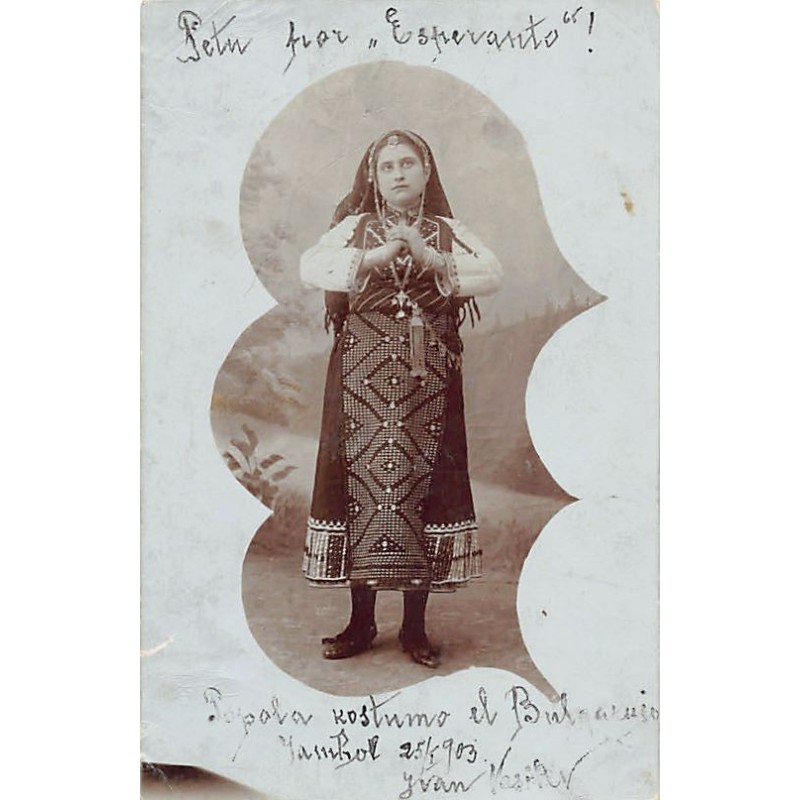 Petu por „Esperanto“!
Popola kostumo el Bulgarujo
Jambol 25/I 903
Ivan